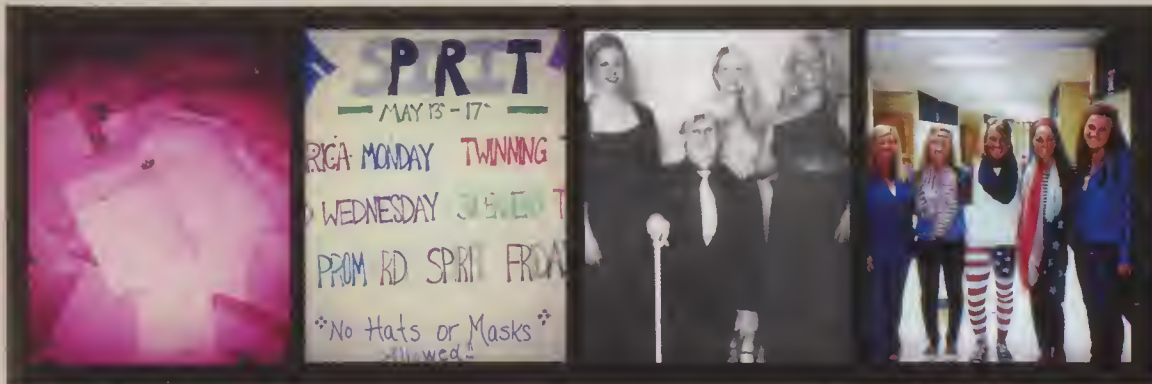 SPIRIT
MAY 13 - 17
RICA MONDAY TWINNING
WEDNESDAY
PROM RD SPRI FRIDA
*No Hats or Masks*
allowed